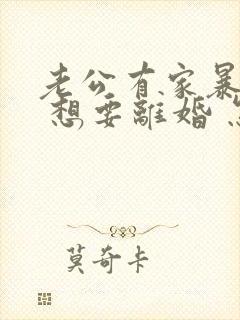 老公有家暴
想要離婚
莫奇卡